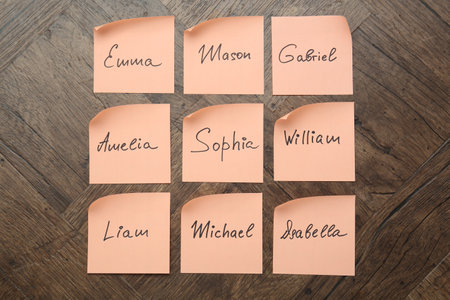 Emma Mason Gabriel
Amelia Sophia William
Liam Michael Isabella